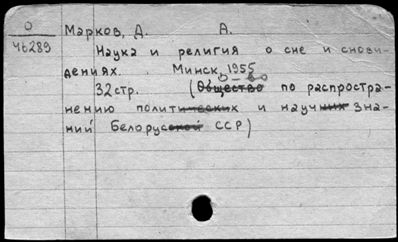 О
46289
Марков, Д. А.
Наука и религия о сне и снови-
дениях. Минск, 1955
О-во
32стр. (Общество по распростра-
нению политических и научных зна-
ний Белорусской ССР)